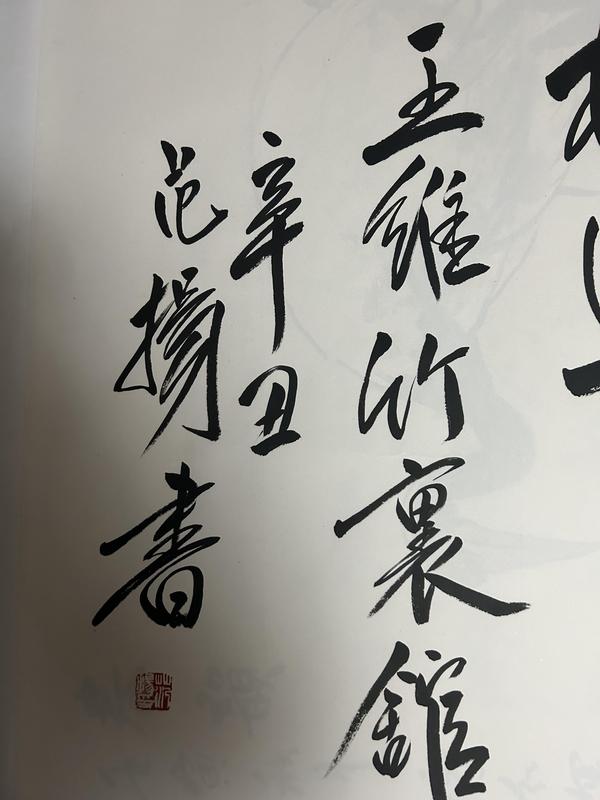 王維竹裏館
辛丑
范揚書